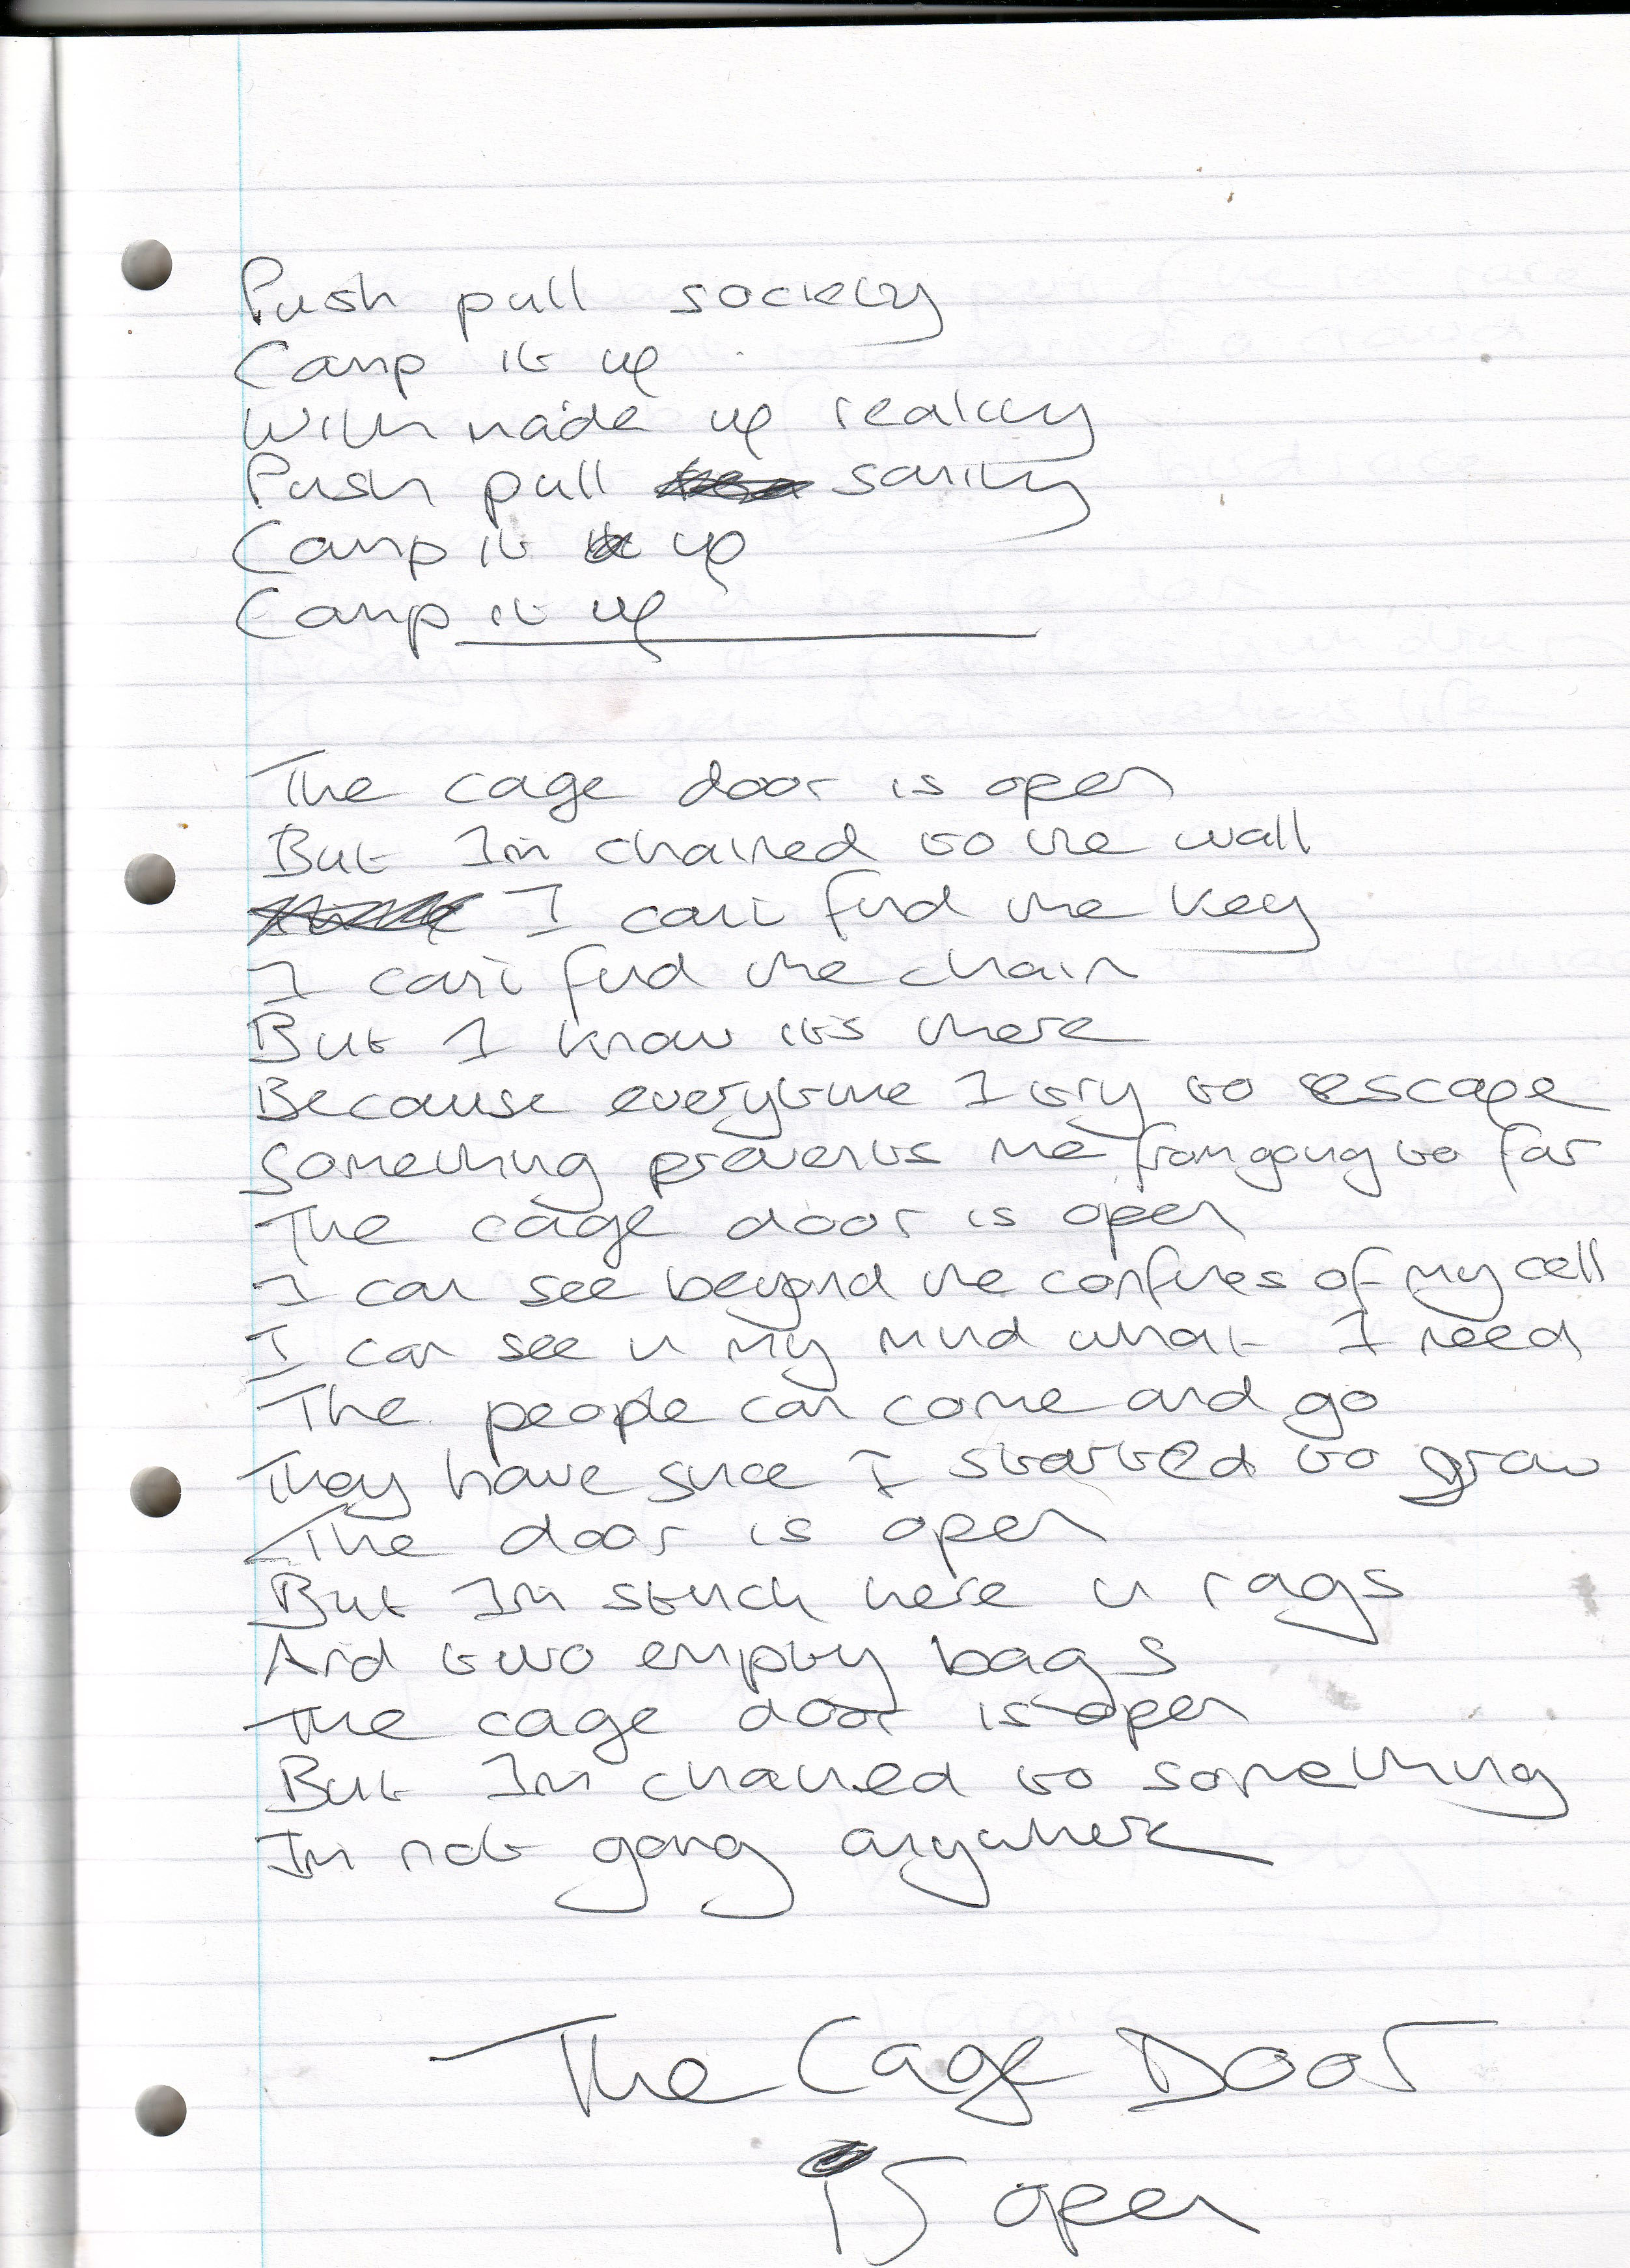 Push pull society
Camp it up
With made up reality
Push pull sanity
Camp it up
Camp it up
The cage door is open
But Im chained to the wall
I can't find the key
I can't find the chain
But I know it's there
Because everytime I try to escape
Something prevents me from going to far
The cage door is open
I can see beyond the confines of my cell
I can see in my mind what I need
The people can come and go
They have since I started to grow
The door is open
But Im stuck here in rags
And two empty bags
The cage door is open
But Im chained to something
Im not going anywhere
The Cage Door
is open